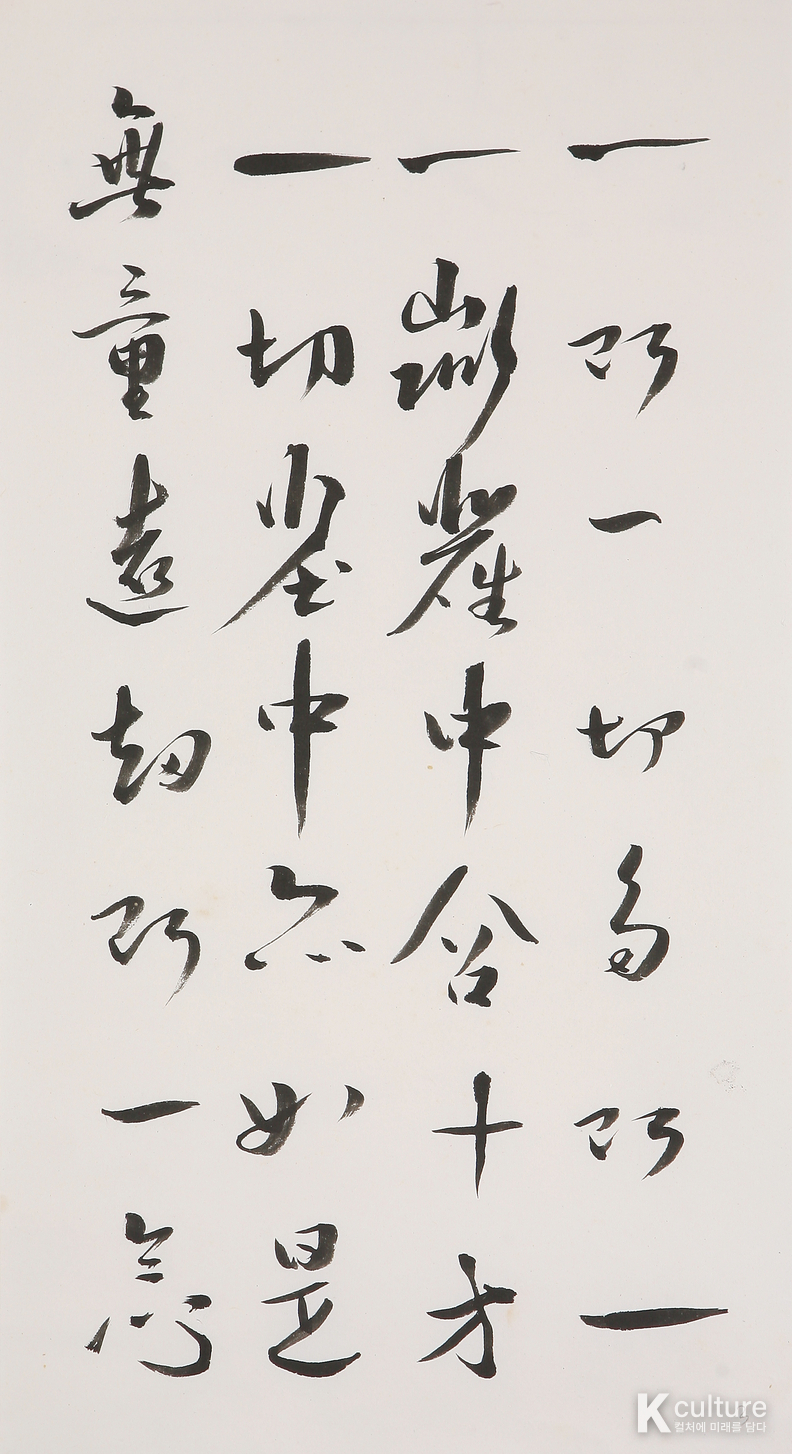 一即一切多即一
一微塵中含十方
一切塵中亦如是
無量遠劫即一念
K culture
컬처에 미래를 담다